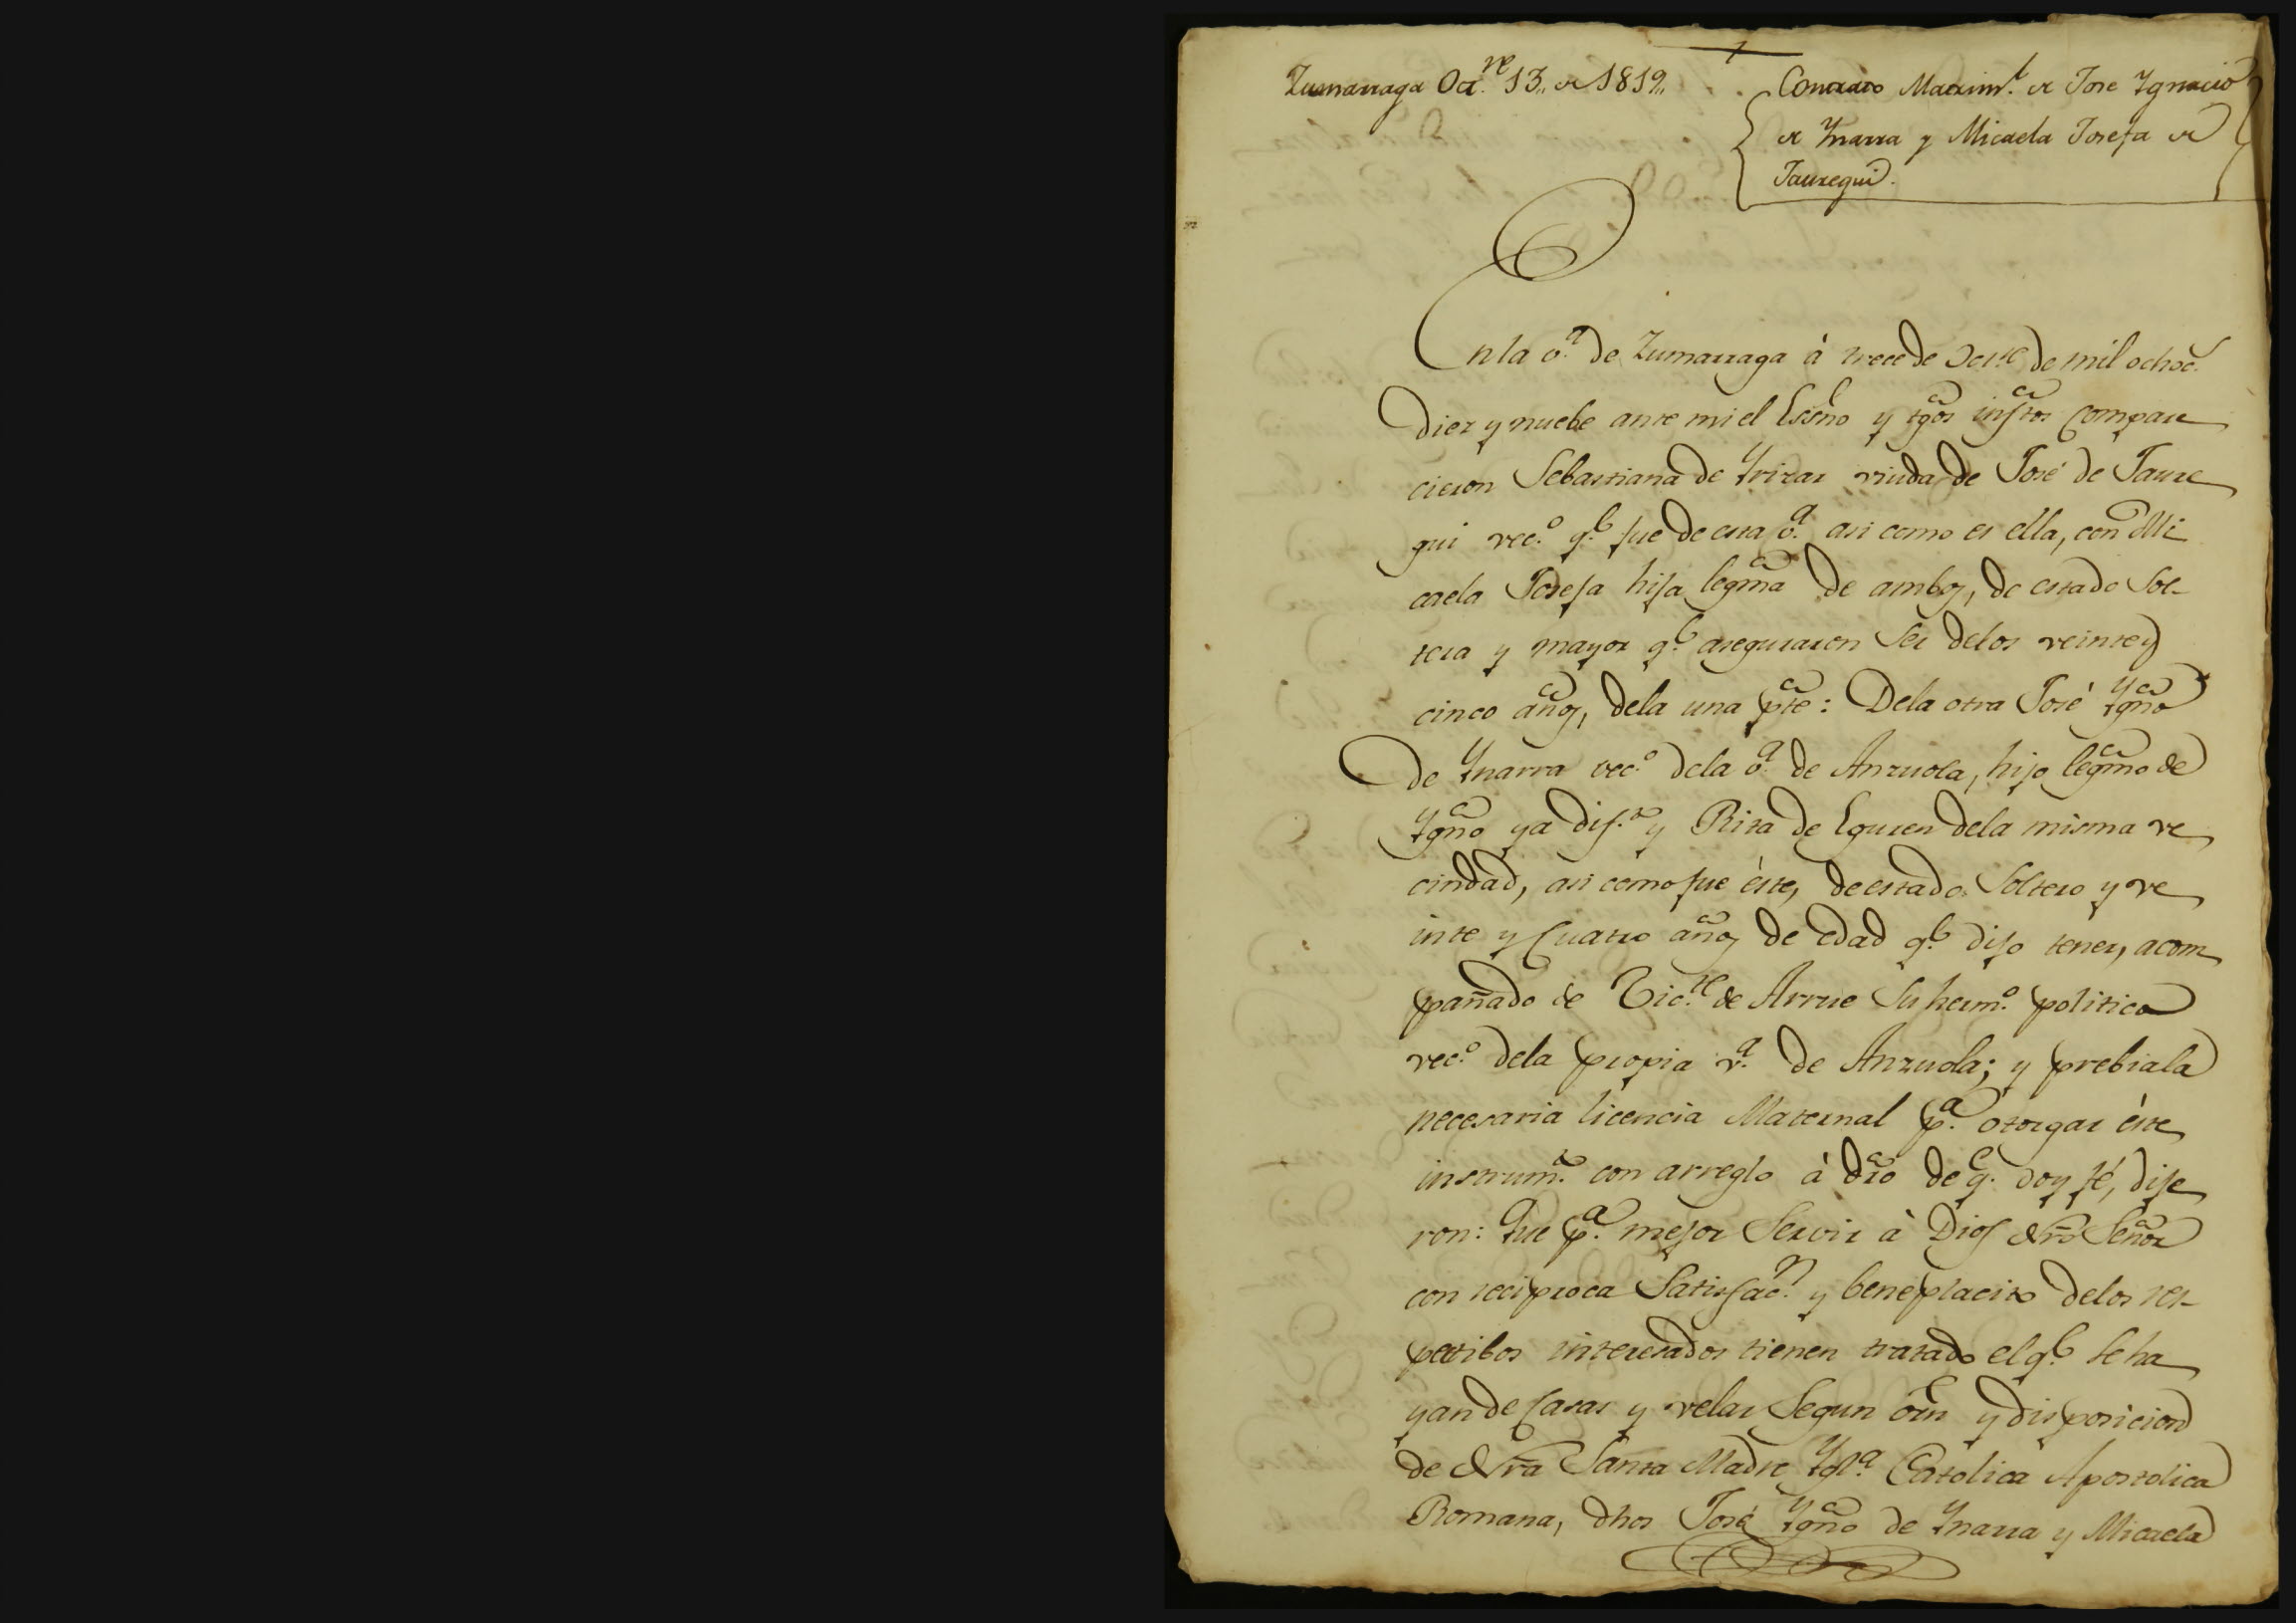 Zumarraga Oct.re 13,, de 1819,,
Contrato Matrim.l de Jose Ygnacio
de Ynarra y Micaela Josefa de
Jauregui.
En la v.a de Zumarraga à trece de Oct.re de mil ochoc.s
diez y nuebe ante mi el Essno y tgos infrtos compare
cieron Sebastiana de Yrizar viuda de José de Jaure
gui vec.o q.e fue de esta v.a asi como es ella, con Mi
caela Josefa hija legma de ambos, de estado Sol-
tera y mayor q.e aseguraron ser delos veinte y
cinco años, dela una pte: Dela otra José Ygno
De Ynarra vec.o dela v.a de Anzuola, hijo legmo de
Ygno ya dif.to y Rita de Eguren dela misma ve
cindad, asi como fue èste, de estado Soltero y ve
inte y Cuatro años de edad q.e dijo tener, acom
pañado de Vic.te de Arrue Su herm.o politico
vec.o dela propia v.a de Anzuola; y prebia la
necesaria licencia Maternal p.a otorgar èste
instrum.to con arreglo à dro de q.e doy fé, dije
ron: Que p.a mejor Servir à Dios Nro Señor
con reciproca Satisfac.n y beneplacito delos res-
petibos interesados tienen tratado el q.e se ha
yan de Casar y velar Segun orn y disposicion
de Nra Santa Madre Ygl.a Catolica Apostolica
Romana, dhos José Ygno de Ynarra y Micaela